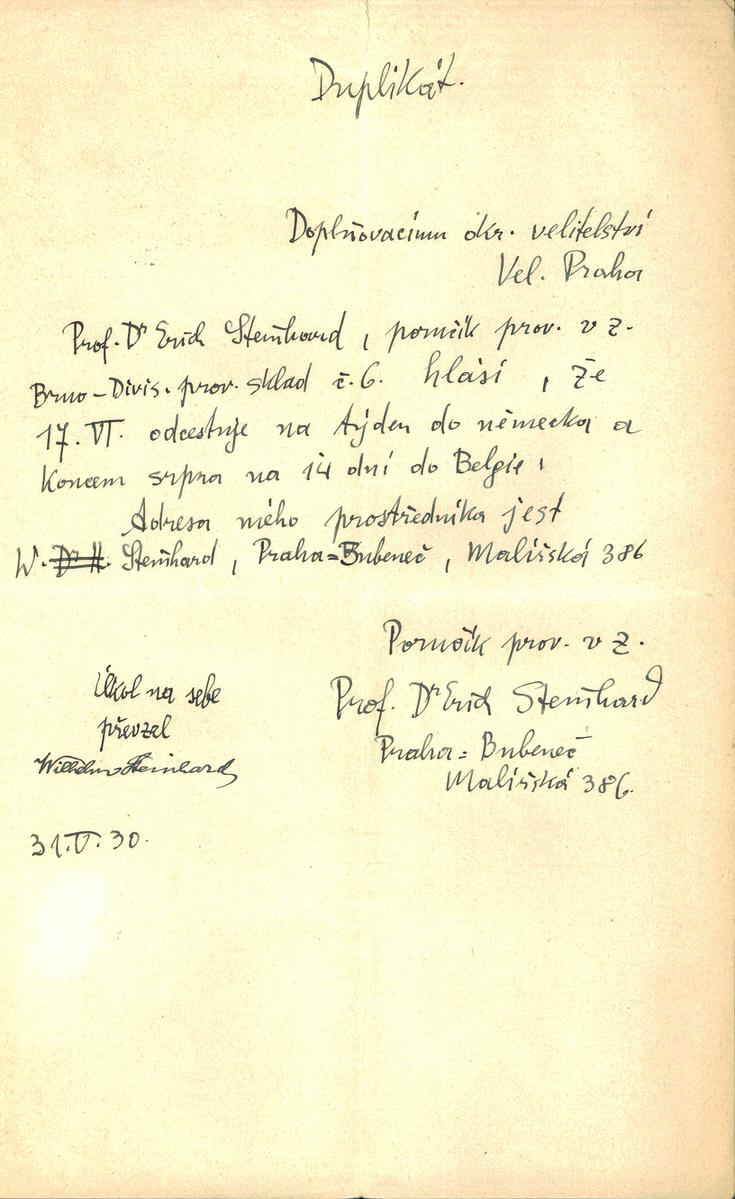 Duplikát.
Doplňovacímu okr. velitelství
Vel. Praha
Prof. Dr Erich Steinhard, poručík prov. v z.
Brno - Divis. prov. sklad č. 6. hlásí, že
17. VI. odcestuje na týden do německa a
Koncem srpna na 14 dní do Belgie.
Adresa mého prostředníka jest
W. Dr H. Steinhard, Praha = Bubeneč, Malířská 386
Poručík prov. v z.
Prof. Dr Erich Steinhard
Praha = Bubeneč
Malířská 386.
Úkol na sebe
převzal
Wilhelm Steinhard
31. V. 30.